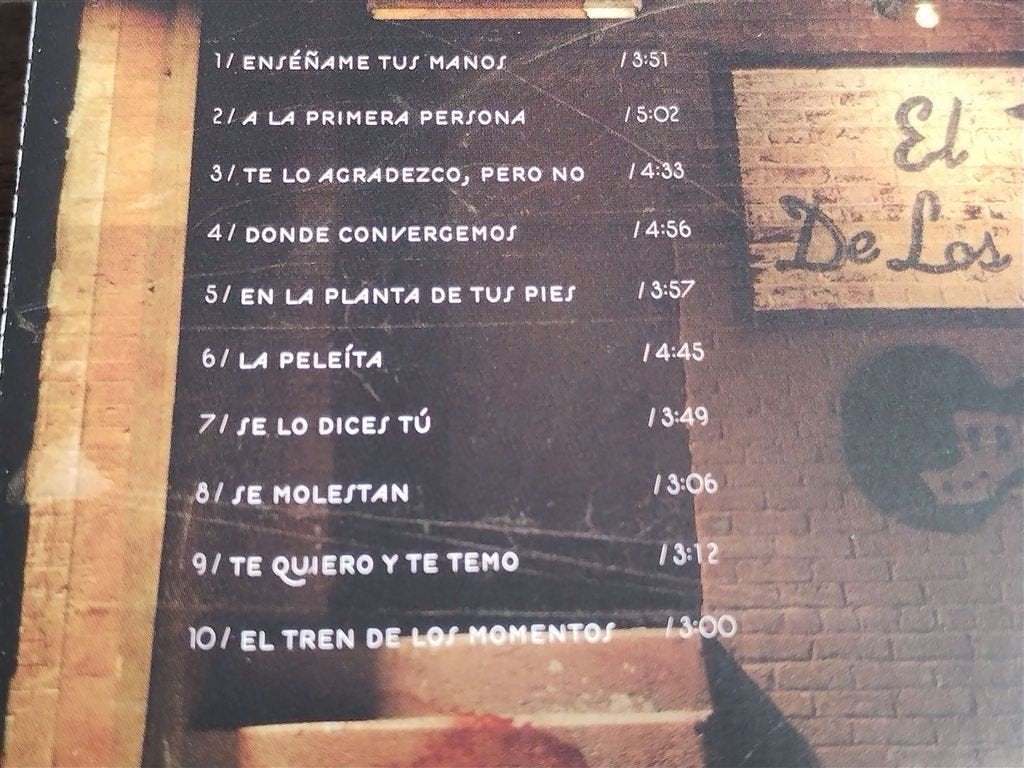 1/ ENSÉÑAME TUS MANOS /3:51
2/ A LA PRIMERA PERSONA /5:02
3/ TE LO AGRADEZCO, PERO NO /4:33
4/ DONDE CONVERGEMOS /4:56
5/ EN LA PLANTA DE TUS PIES /3:57
6/ LA PELEÍTA /4:45
7/ SE LO DICES TÚ /3:49
8/ SE MOLESTAN /3:06
9/ TE QUIERO Y TE TEMO /3:12
10/ EL TREN DE LOS MOMENTOS /3:00
El
De Los